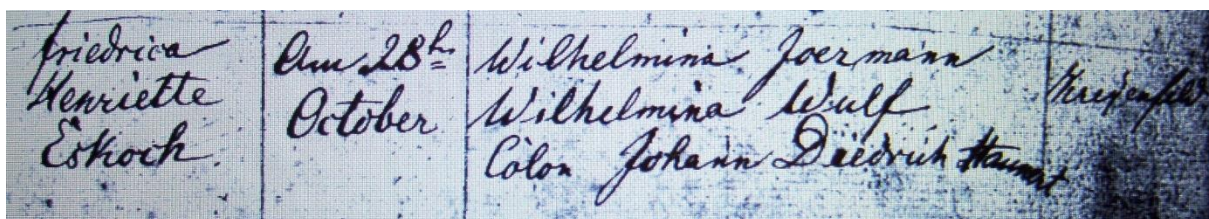 Friedrica
Henriette
Eskoch.
Am 28th
October
Wilhelmina Joermann
Wilhelmina Wulf
Colon Johann Diedrich